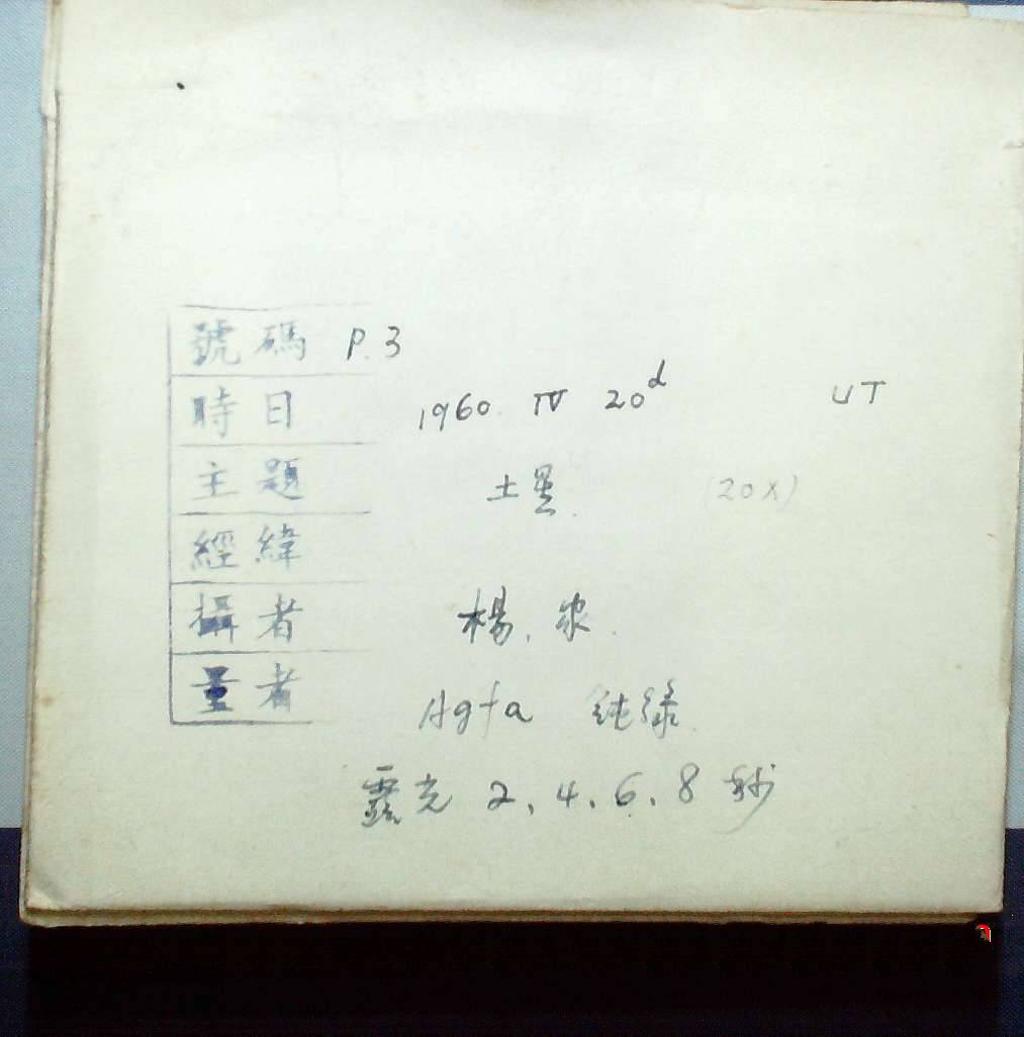 號碼 P. 3
時日 1960 IV 20d UT
主題 土星 (20X)
經緯
攝者 楊.
量者 Agfa 純綠
露光 2、4、6、8 秒